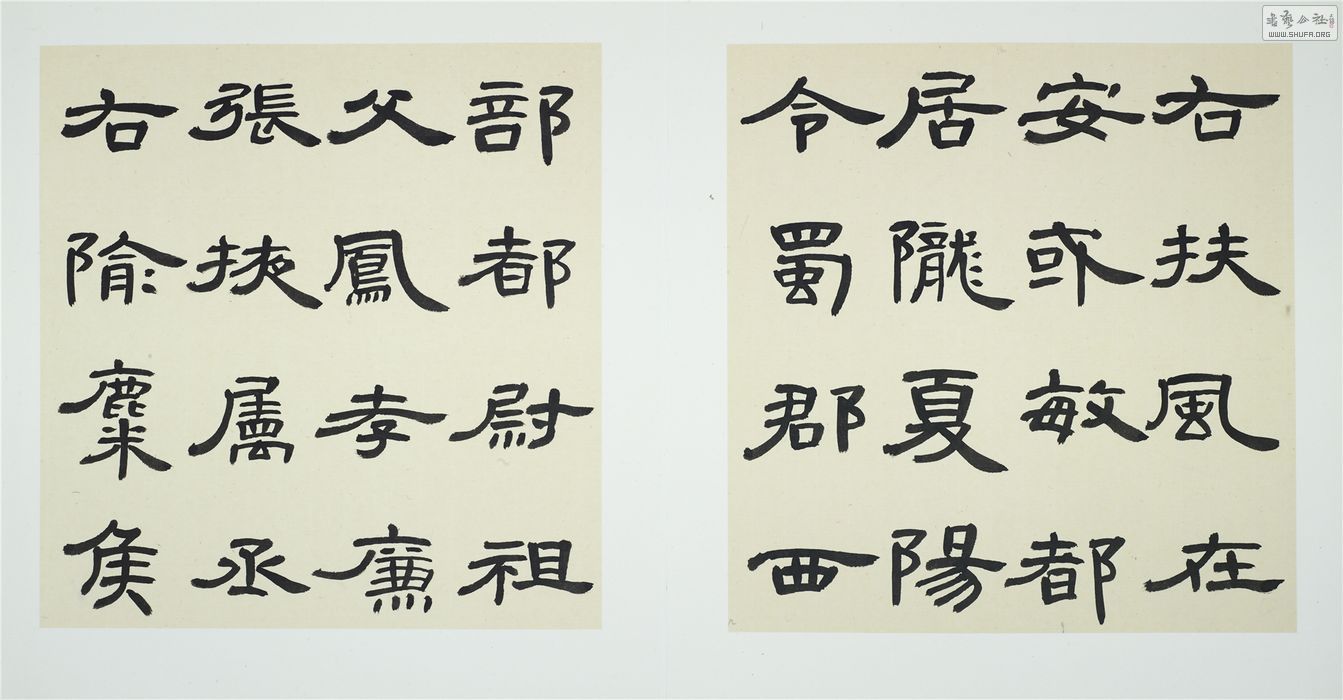 右扶風在
安或敏都
居隴夏陽
令蜀郡西
部都尉祖
父鳳孝廉
張掖屬丞
右隃麋侯
書藝公社
WWW.SHUFA.ORG